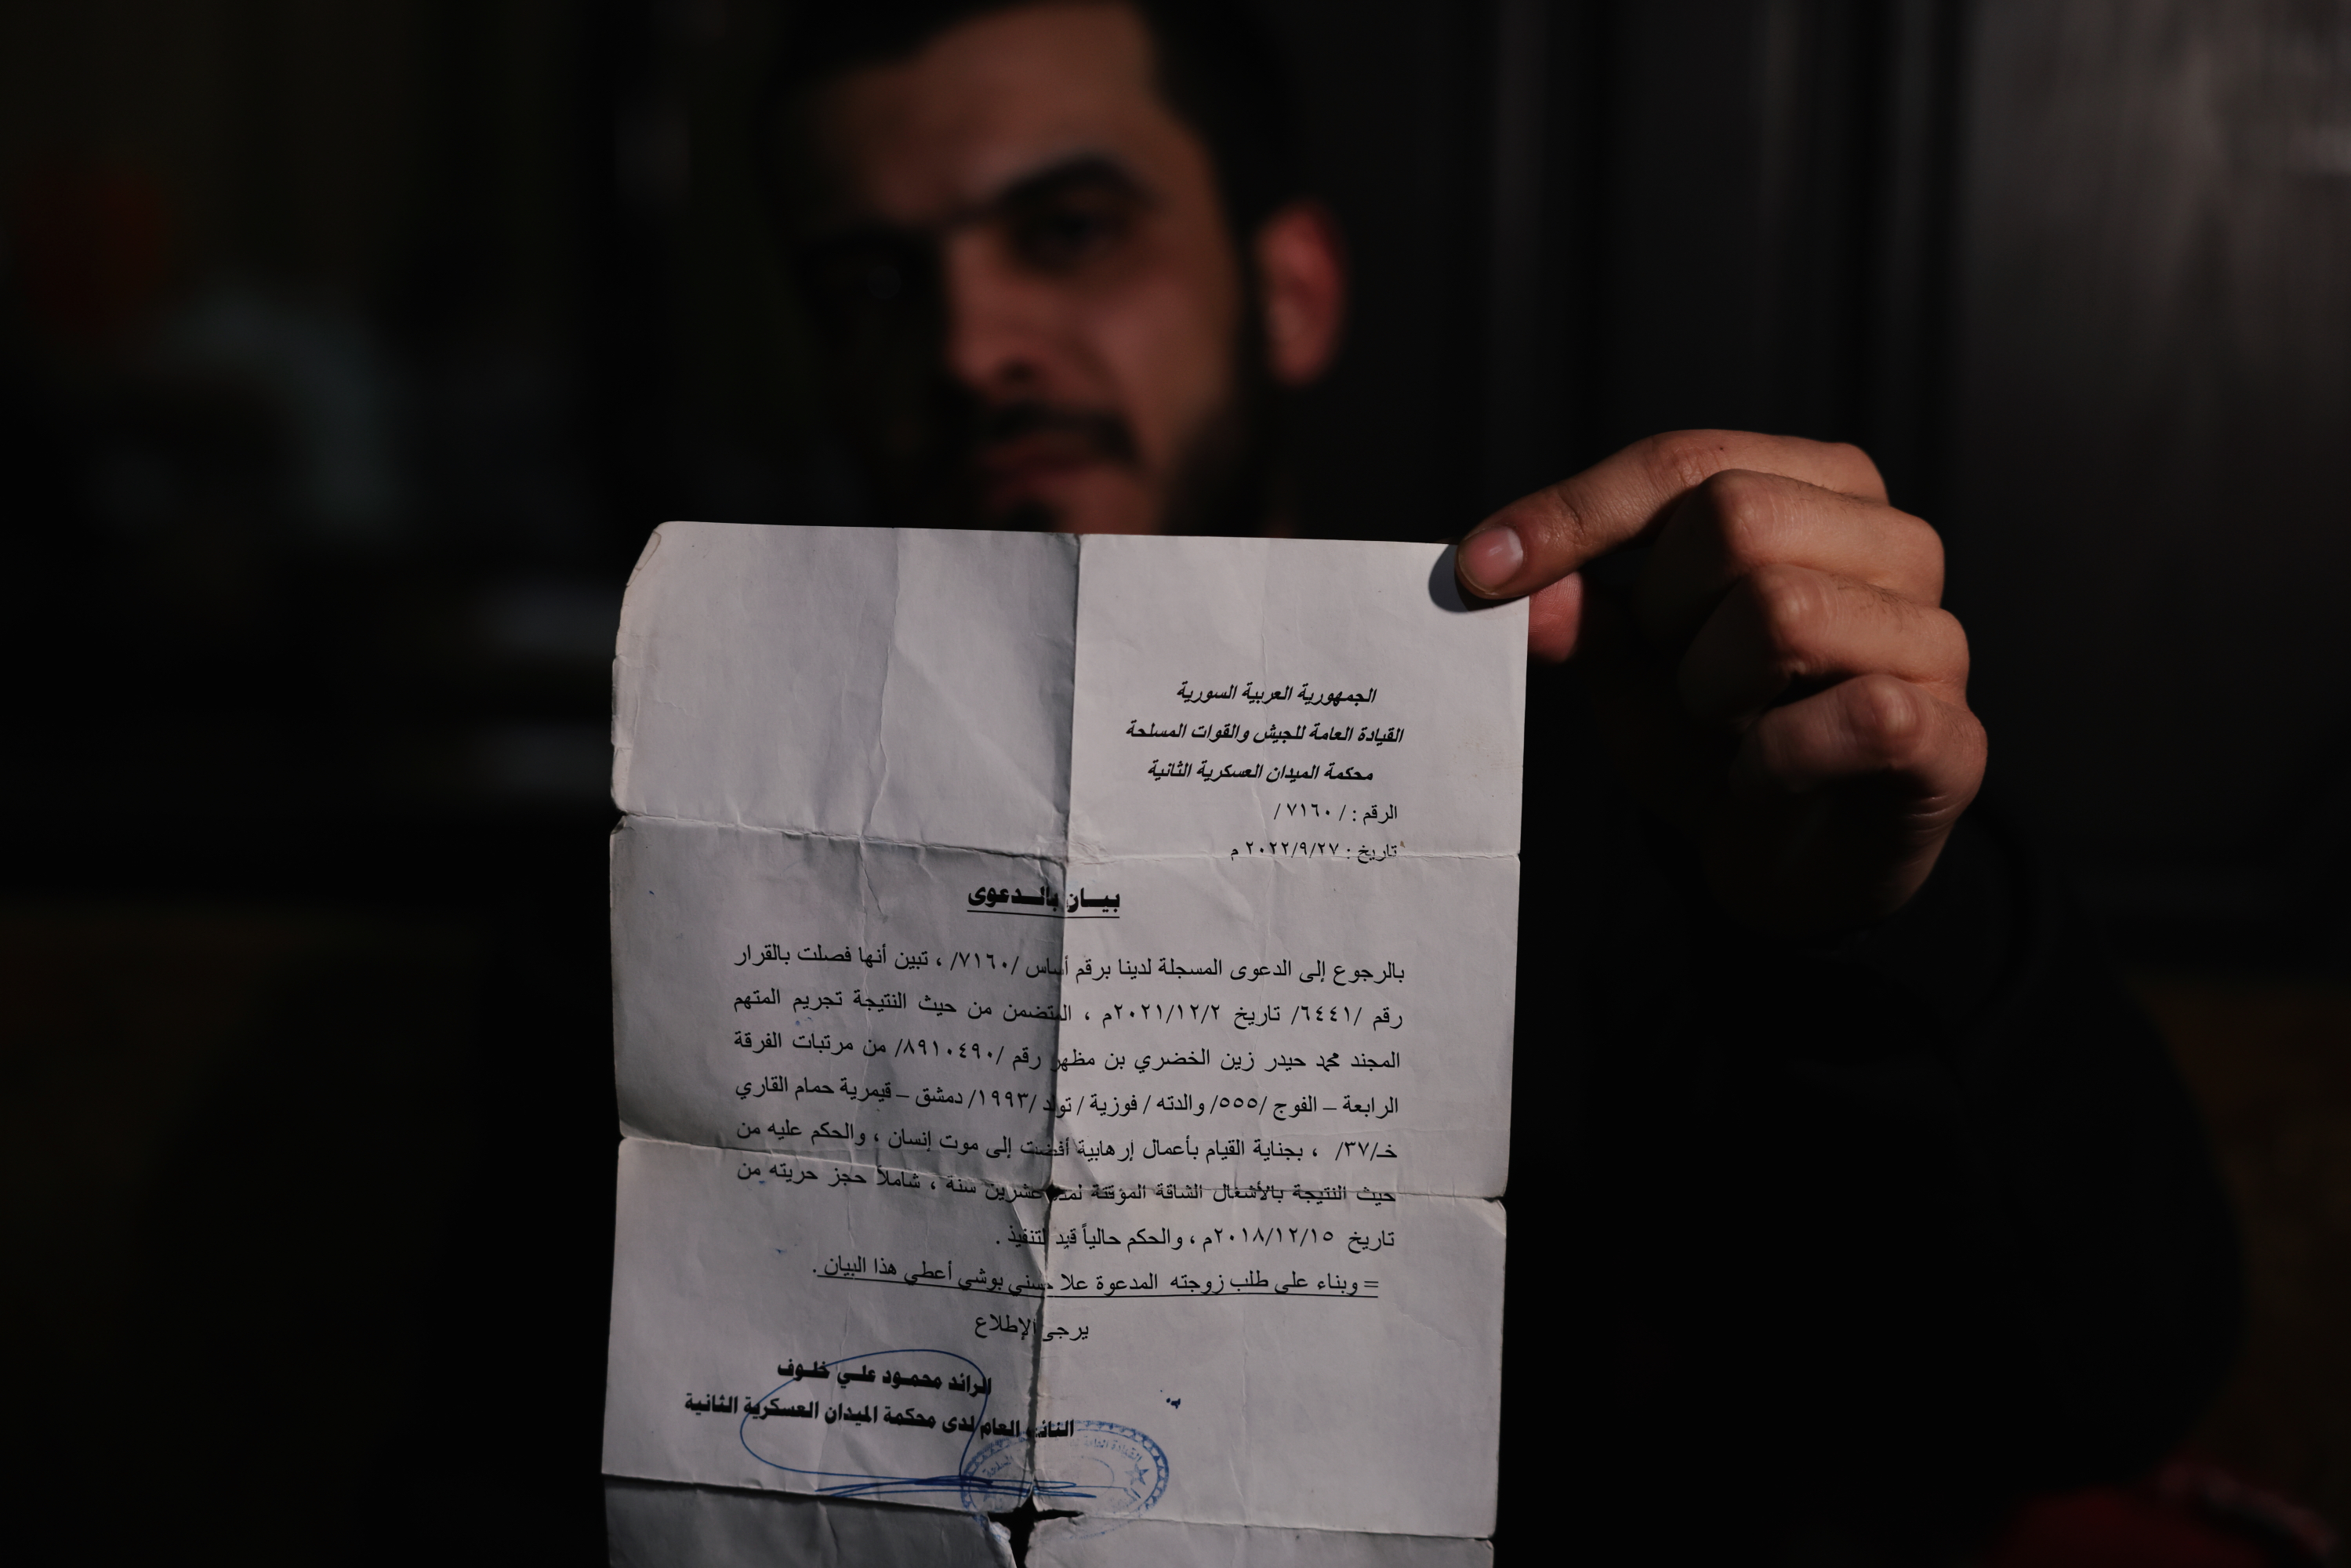 الجمهورية العربية السورية
القيادة العامة للجيش والقوات المسلحة
محكمة الميدان العسكرية الثانية
الرقم : / ٧١٦٠ /
تاريخ : ٢٠٢٢/٩/٢٧ م
بيـــان بالـــدعوى
بالرجوع إلى الدعوى المسجلة لدينا برقم أساس /٧١٦٠/ ، تبين أنها فصلت بالقرار
رقم /٦٤٤١/ تاريخ ٢٠٢١/١٢/٢م ، المتضمن من حيث النتيجة تجريم المتهم
المجند محمد حيدر زين الخضري بن مظهر رقم /٨٩١٠٤٩٠/ من مرتبات الفرقة
الرابعة – الفوج /٥٥٥/ والدته / فوزية / تولد /١٩٩٣/ دمشق – قيمرية حمام القاري
خـ/٣٧/ ، بجناية القيام بأعمال إرهابية أفضت إلى موت إنسان ، والحكم عليه من
حيث النتيجة بالأشغال الشاقة المؤقتة لمدة عشرين سنة ، شاملاً حجز حريته من
تاريخ ٢٠١٨/١٢/١٥م ، والحكم حالياً قيد التنفيذ .
= وبناء على طلب زوجته المدعوة علا حسني بوشي أعطي هذا البيان .
يرجى الإطلاع
الرائد محمـــود علـــي خلـــوف
النائب العام لدى محكمة الميدان العسكرية الثانية
القيادة العامة